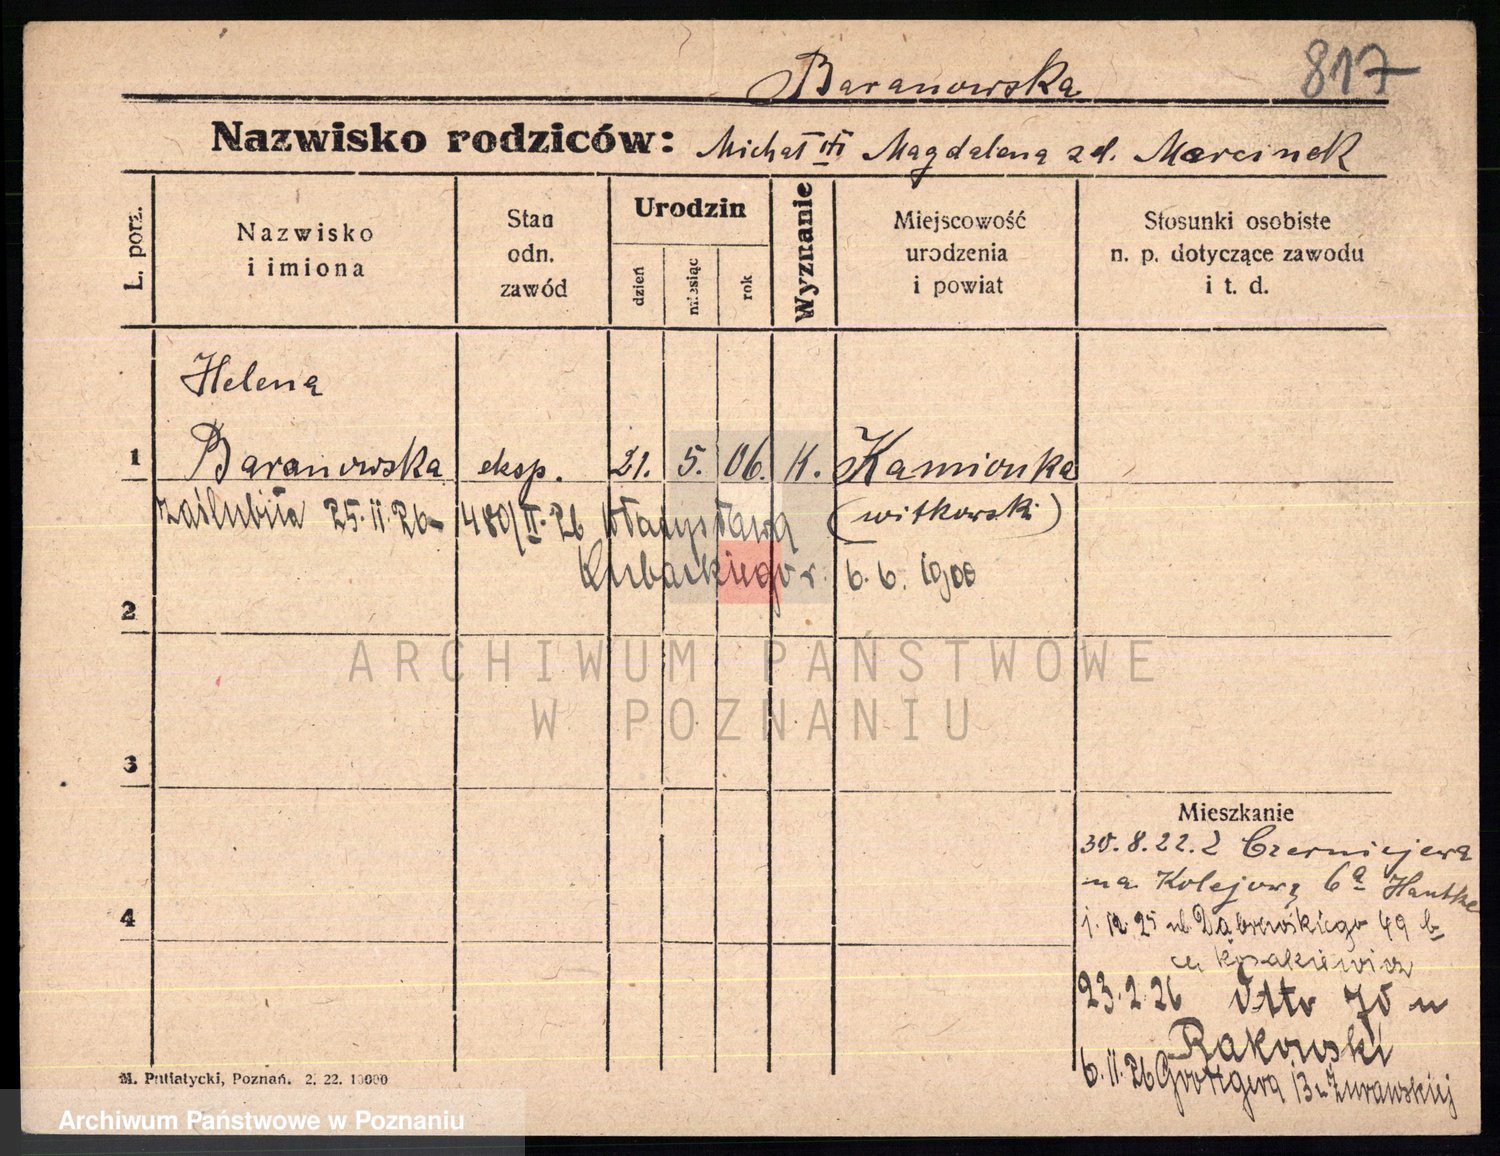 Baranowska
817
Nazwisko rodziców: Michał Magdalena zd. Marcinek
L. porz.
Nazwisko
i imiona
Stan
odn.
zawód
Urodzin
dzień
miesiąc
rok
Wyznanie
Miejscowość
urodzenia
i powiat
Stosunki osobiste
n. p. dotyczące zawodu
i t. d.
Helena
1 Baranowska eksp. 21. 5. 06. K. Kamionka
zaślubiła 25.II.26 480/II.26 Władysława (witkowski)
Kubackiego r. 6.6. 1900
2
ARCHIWUM PAŃSTWOWE
W POZNANIU
3
Mieszkanie
30.8.22. z Czerniejewa
na Kolejową 6a Hantke
4
1.12.25 ul. Dąbrowskiego 49 b
Kosakiewicz
23.2.26 Otto 70 u
Rakowski
6.11.26 Grottgera 13 u Żurawskiej
M. Putiatycki, Poznań. 2. 22. 10000
Archiwum Państwowe w Poznaniu